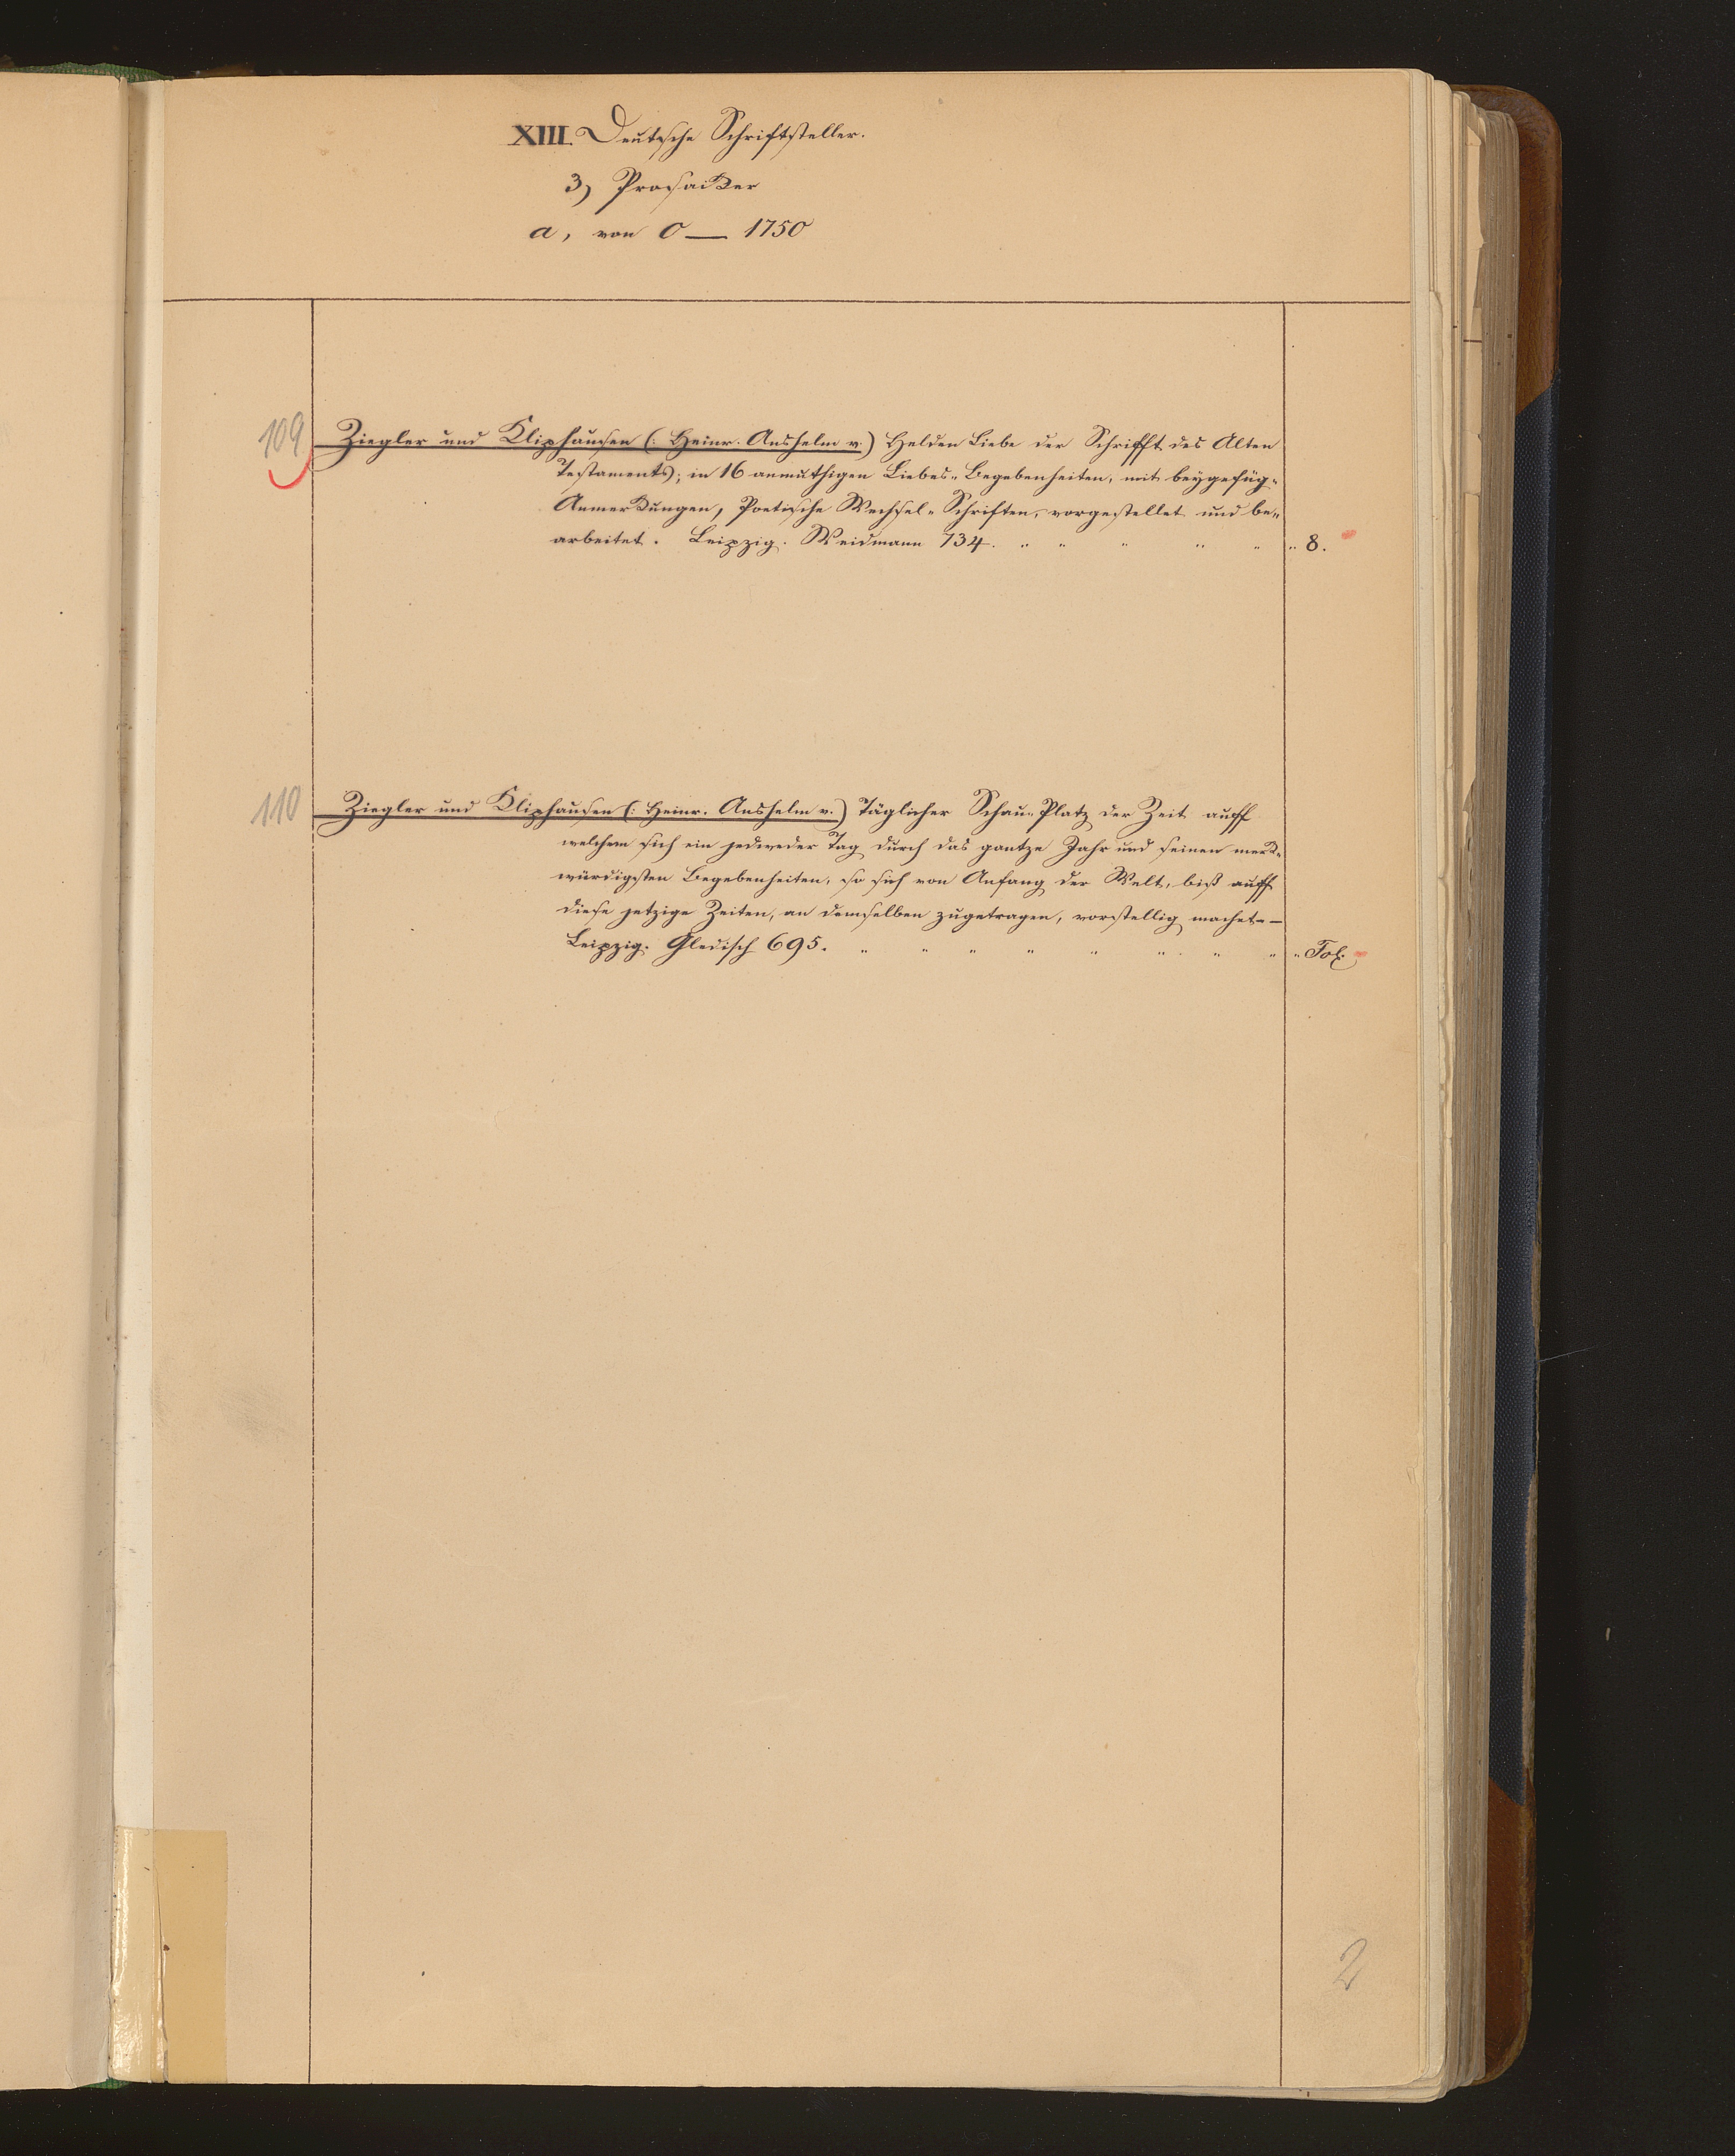 XIII. Deutsche Schriftsteller.
3) Prosaiker
a, von 0 — 1750
109 Ziegler und Kliphausen (: Heinr. Anshelm v.) Helden Liebe der Schrifft des Alten
Testaments; in 16 anmuthigen Liebes-Begebenheiten, mit beygefüg-
Anmerkungen, Poetische Wechsel-Schriften, vorgestellet und be-
arbeitet. Leipzig. Weidmann 734. " " " " " " 8.
110 Ziegler und Kliphausen (: Heinr. Anshelm v.) Täglicher Schau-Platz der Zeit auff
welchem sich ein jedweder Tag durch das gantze Jahr und seinen merk-
würdigsten Begebenheiten, so sich von Anfang der Welt, biß auff
diese jetzige Zeiten, an demselben zugetragen, vorstellig machet. —
Leipzig. Gledisch 695. " " " " " " " " " Fol.
2